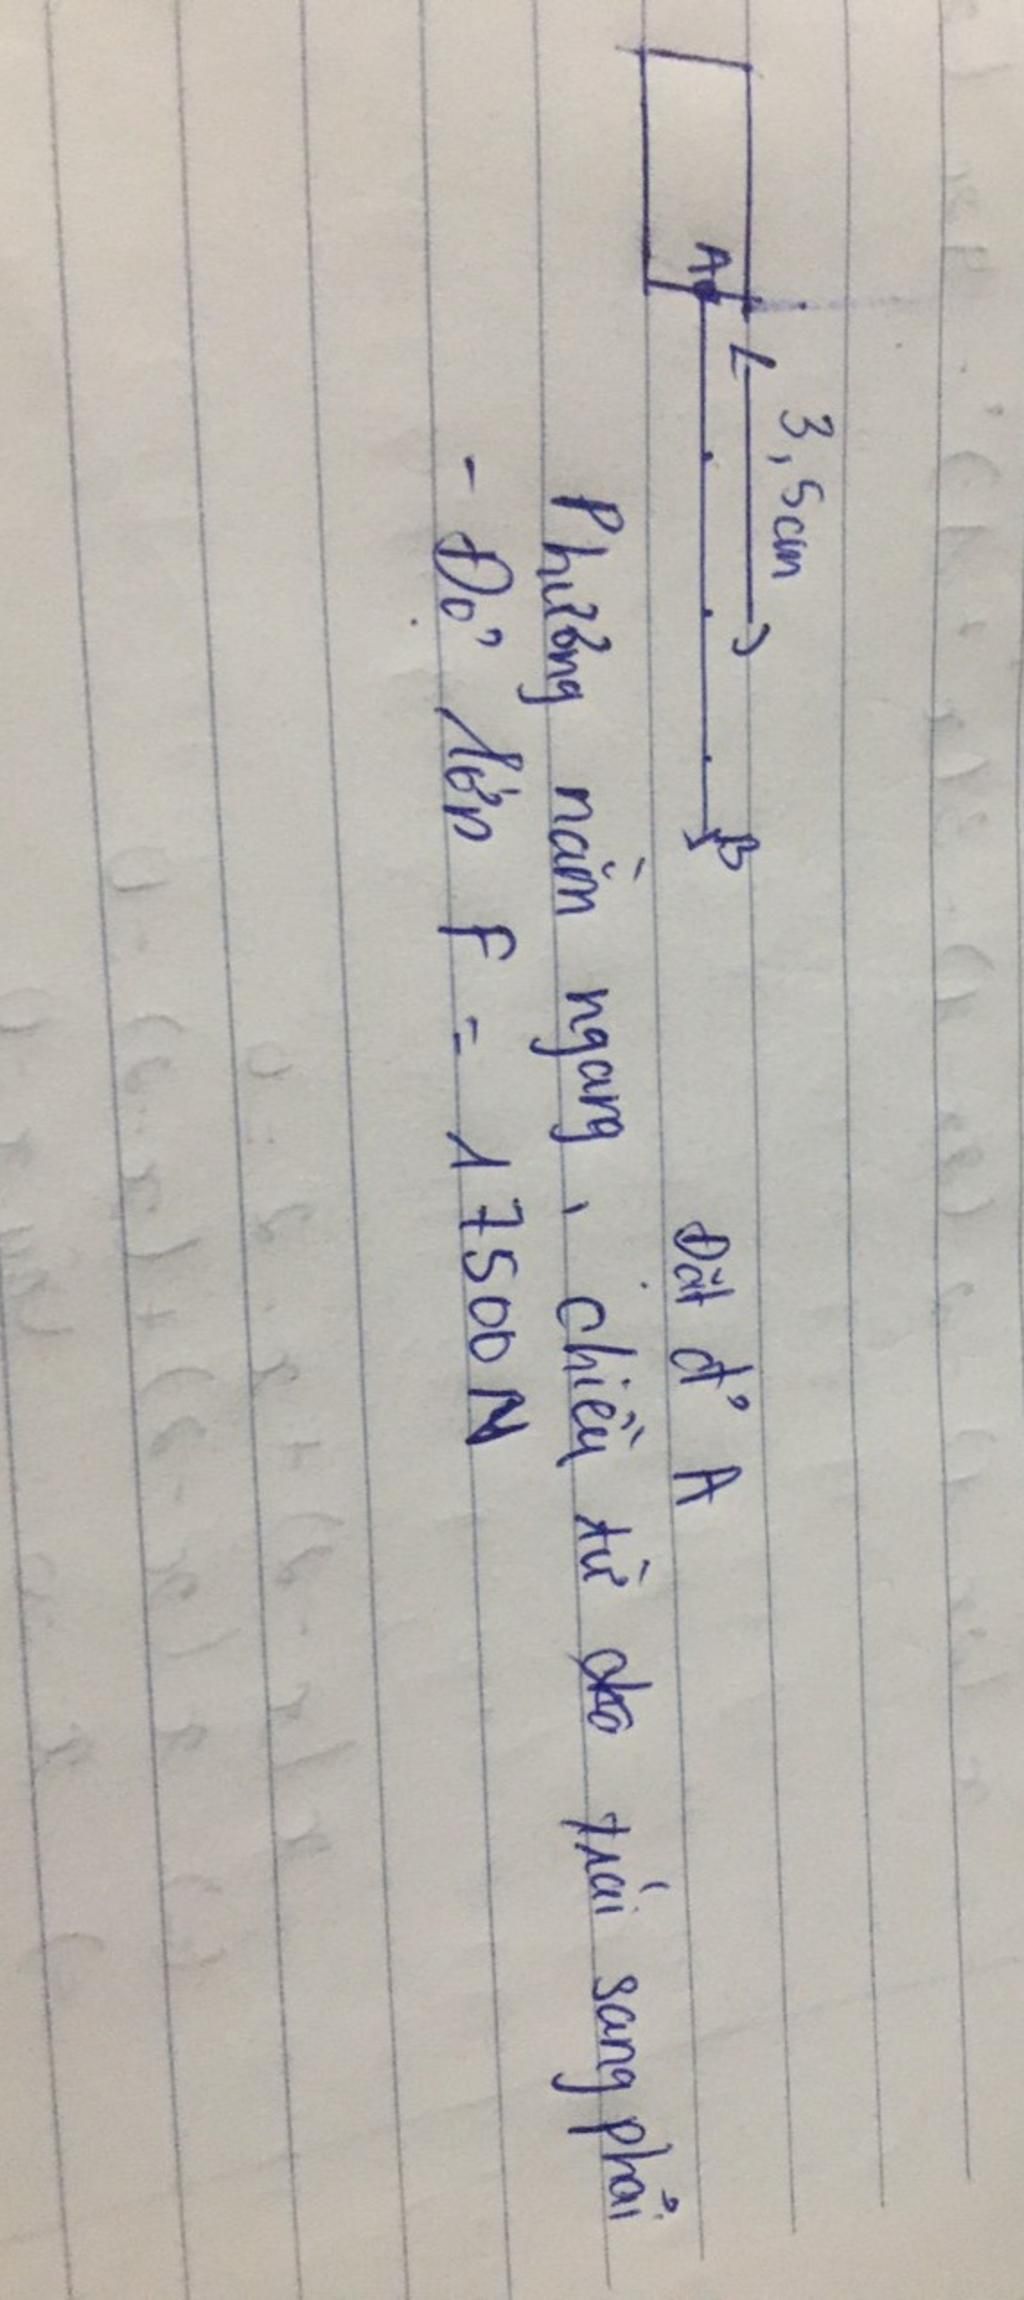 3,5cm
A B
Đặt đ' A
Phương nằm ngang, chiều từ trái sang phải
- Độ lớn F = 17500N